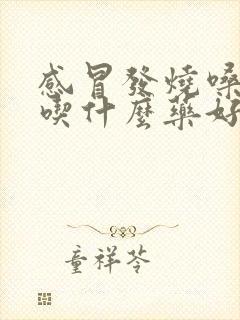 感冒發燒嗓
喫什麼藥好
童祥苓